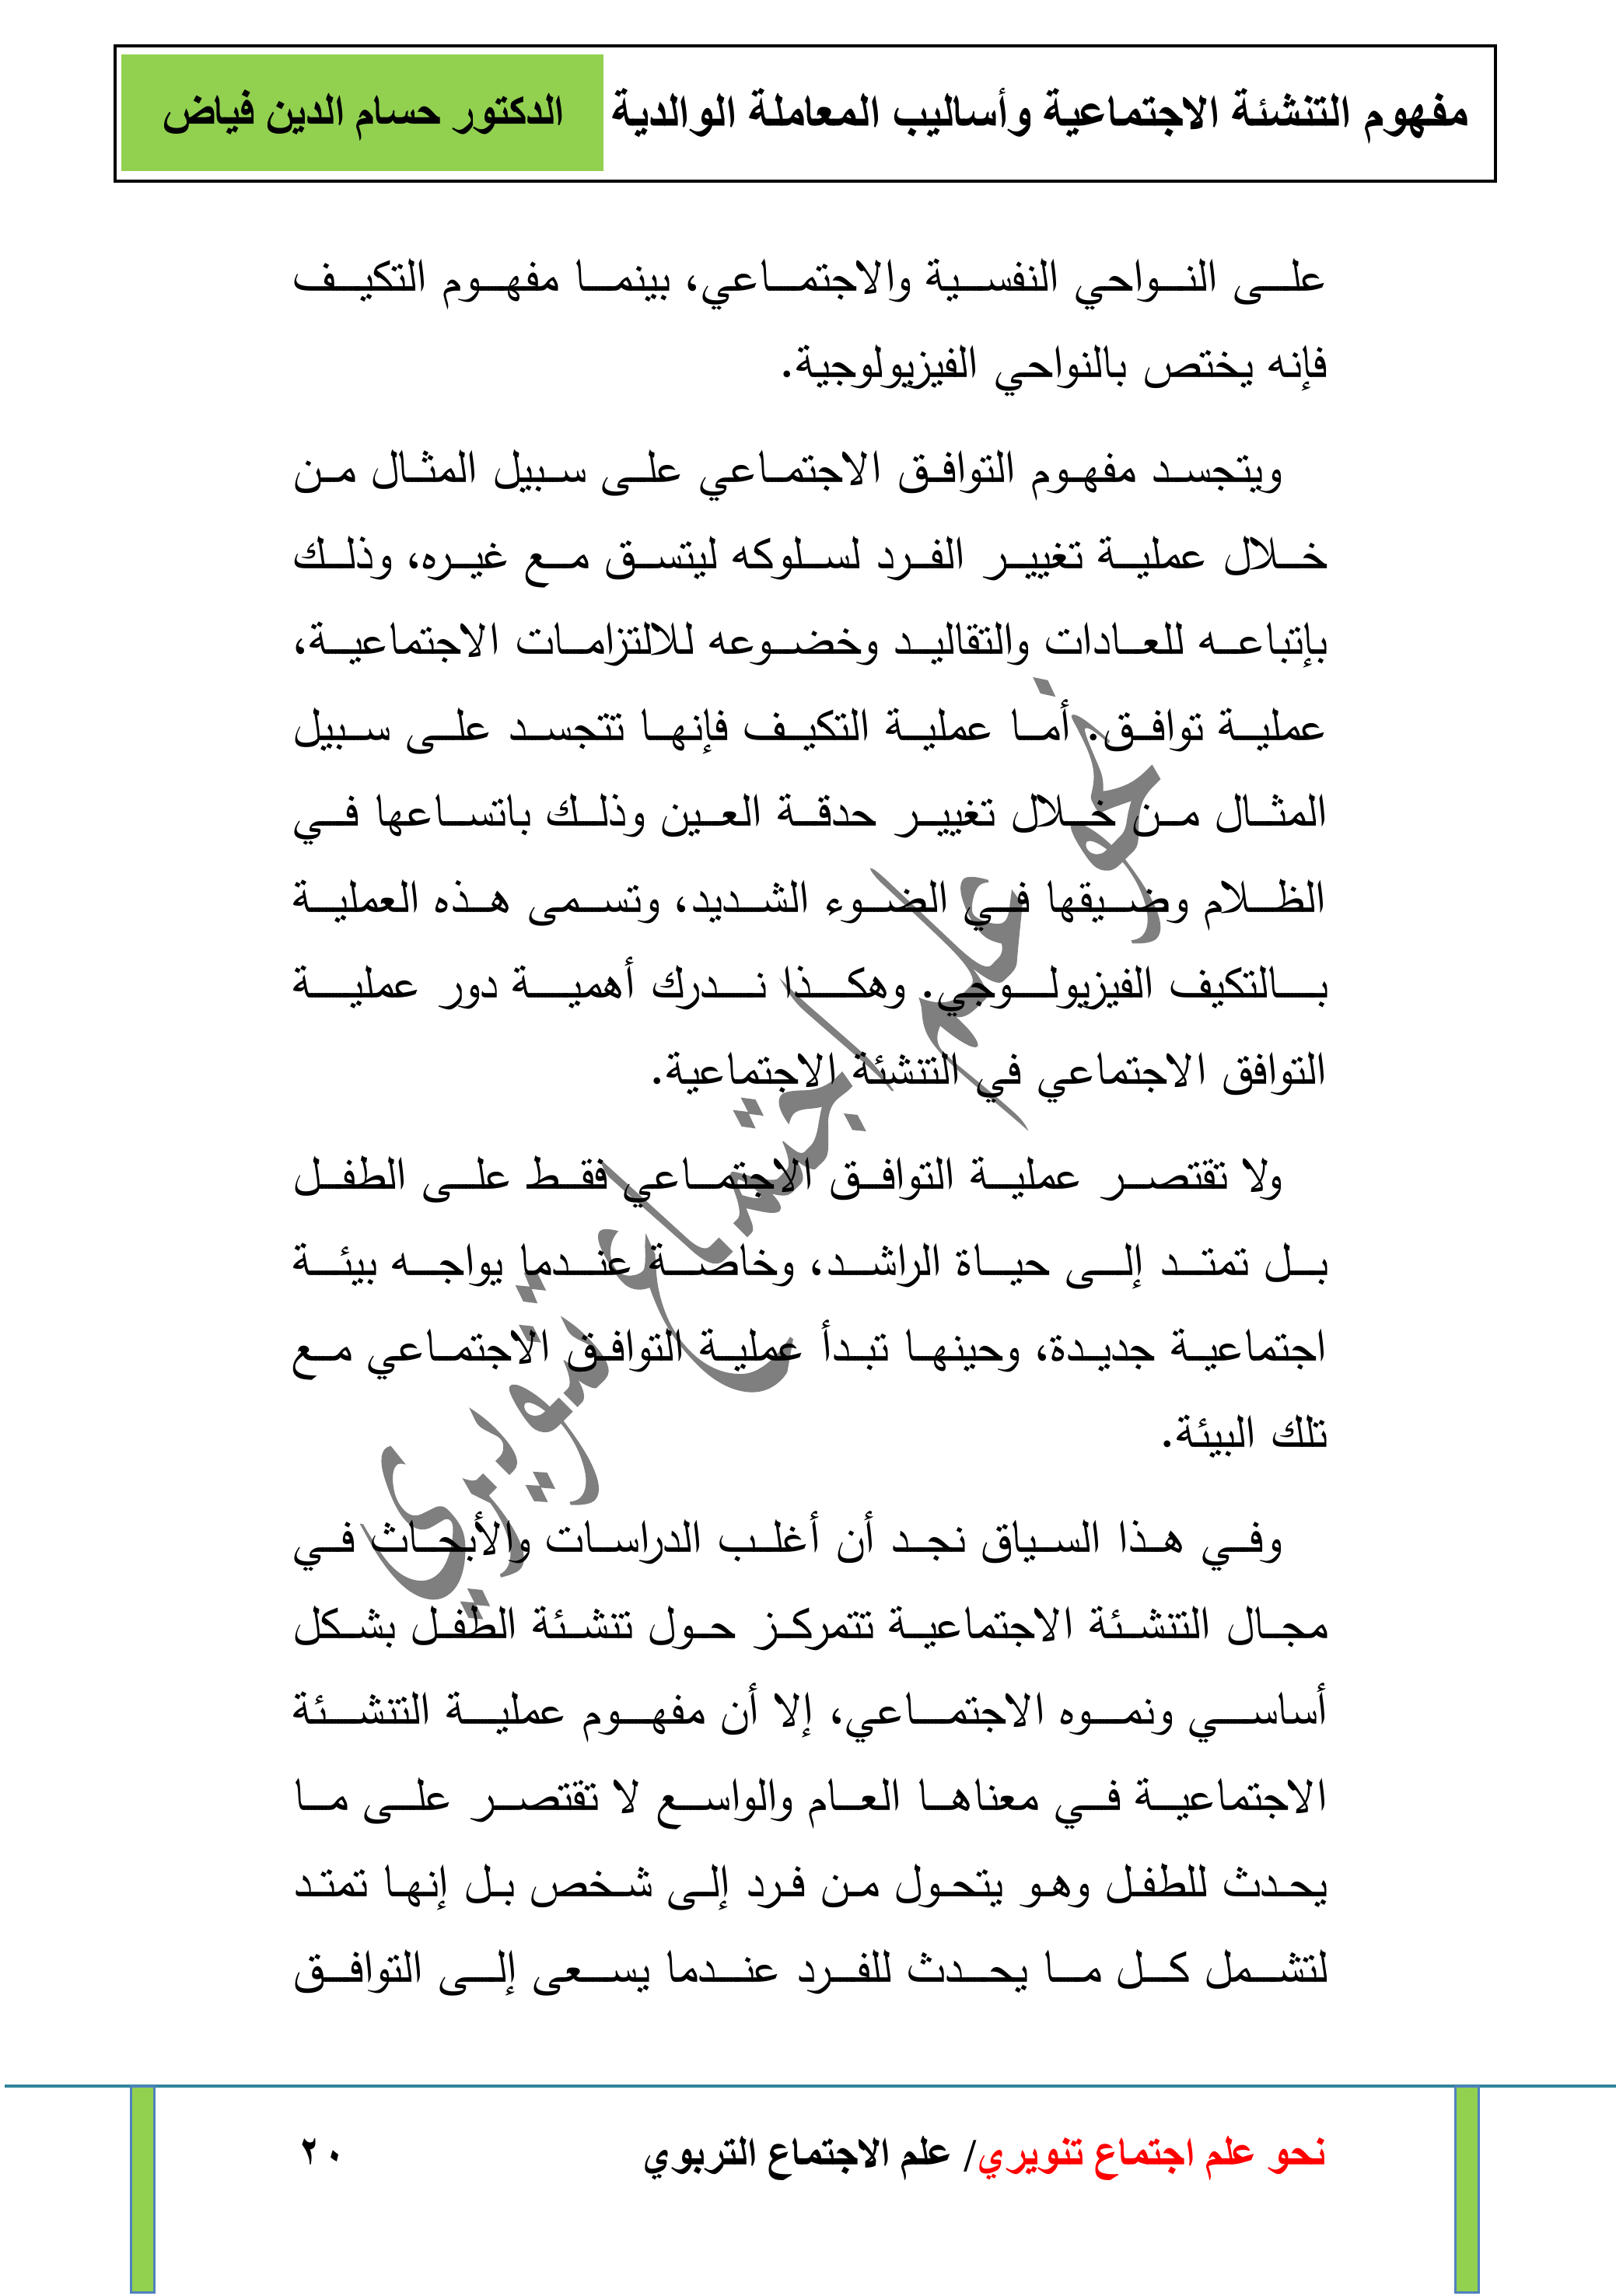 مفهوم التنشئة الاجتماعية وأساليب المعاملة الوالدية الدكتور حسام الدين فياض
على النواحي النفسية والاجتماعي، بينما مفهوم التكيف
فإنه يختص بالنواحي الفيزيولوجية.
ويتجسد مفهوم التوافق الاجتماعي على سبيل المثال من
خلال عملية تغيير الفرد لسلوكه ليتسق مع غيره، وذلك
بإتباعه للعادات والتقاليد وخضوعه للالتزامات الاجتماعية،
عملية توافق. أما عملية التكيف فإنها تتجسد على سبيل
المثال من خلال تغيير حدقة العين وذلك باتساعها في
الظلام وضيقها في الضوء الشديد، وتسمى هذه العملية
بالتكيف الفيزيولوجي. وهكذا ندرك أهمية دور عملية
التوافق الاجتماعي في التنشئة الاجتماعية.
ولا تقتصر عملية التوافق الاجتماعي فقط على الطفل
بل تمتد إلى حياة الراشد، وخاصة عندما يواجه بيئة
اجتماعية جديدة، وحينها تبدأ عملية التوافق الاجتماعي مع
تلك البيئة.
وفي هذا السياق نجد أن أغلب الدراسات والأبحاث في
مجال التنشئة الاجتماعية تتمركز حول تنشئة الطفل بشكل
أساسي ونموه الاجتماعي، إلا أن مفهوم عملية التنشئة
الاجتماعية في معناها العام والواسع لا تقتصر على ما
يحدث للطفل وهو يتحول من فرد إلى شخص بل إنها تمتد
لتشمل كل ما يحدث للفرد عندما يسعى إلى التوافق
نحو علم اجتماع تنويري
نحو علم اجتماع تنويري/ علم الاجتماع التربوي ٢٠